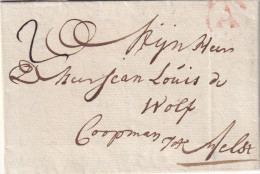 Mijn Heer
Mheer Jean Louis de
Wolf
Coopman tot Aelst